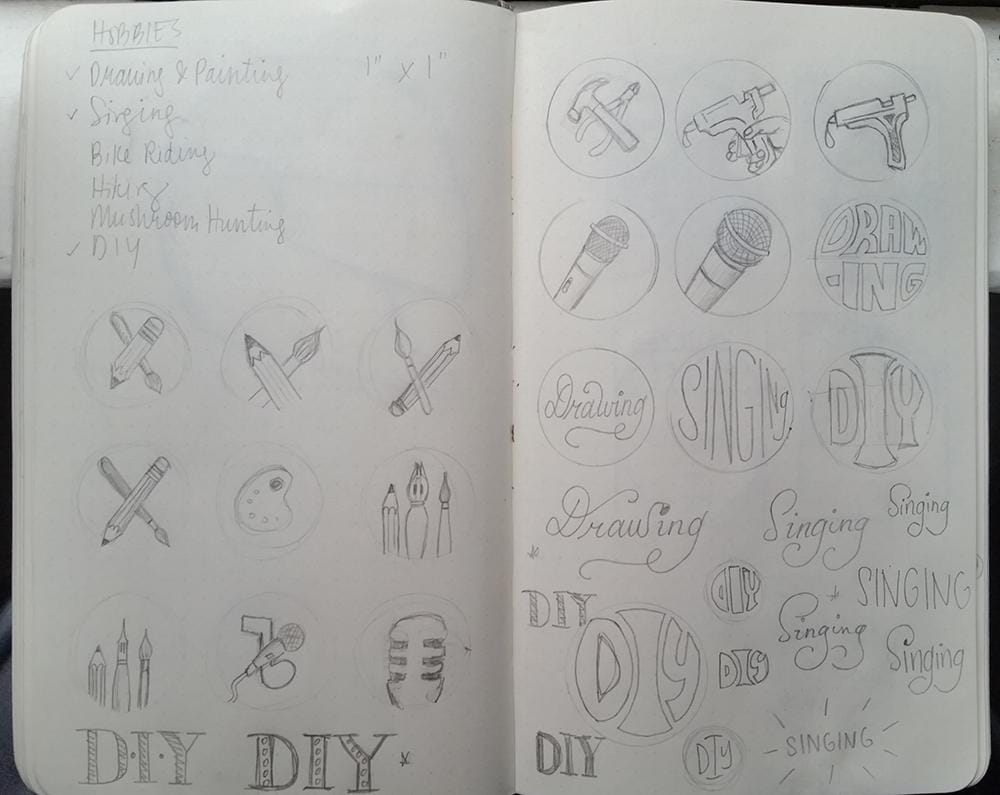 HOBBIES
✓ Drawing & Painting 1" x 1"
✓ Singing
Bike Riding
Hiking
Mushroom Hunting
✓ DIY
D·I·Y DIY
DRAW
-ING
Drawing SINGING DIY
Drawing Singing Singing
DIY DIY SINGING
DIY Singing
DIY Singing
DIY DIY SINGING